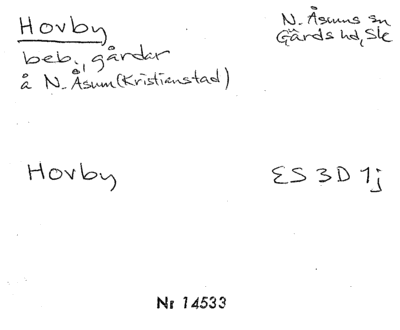 Hovby
N. Åsums sn
Gärds hd, Sk
beb., gårdar
å N. Åsum (Kristianstad)
Hovby
ES 3D 1j
Nr 14533